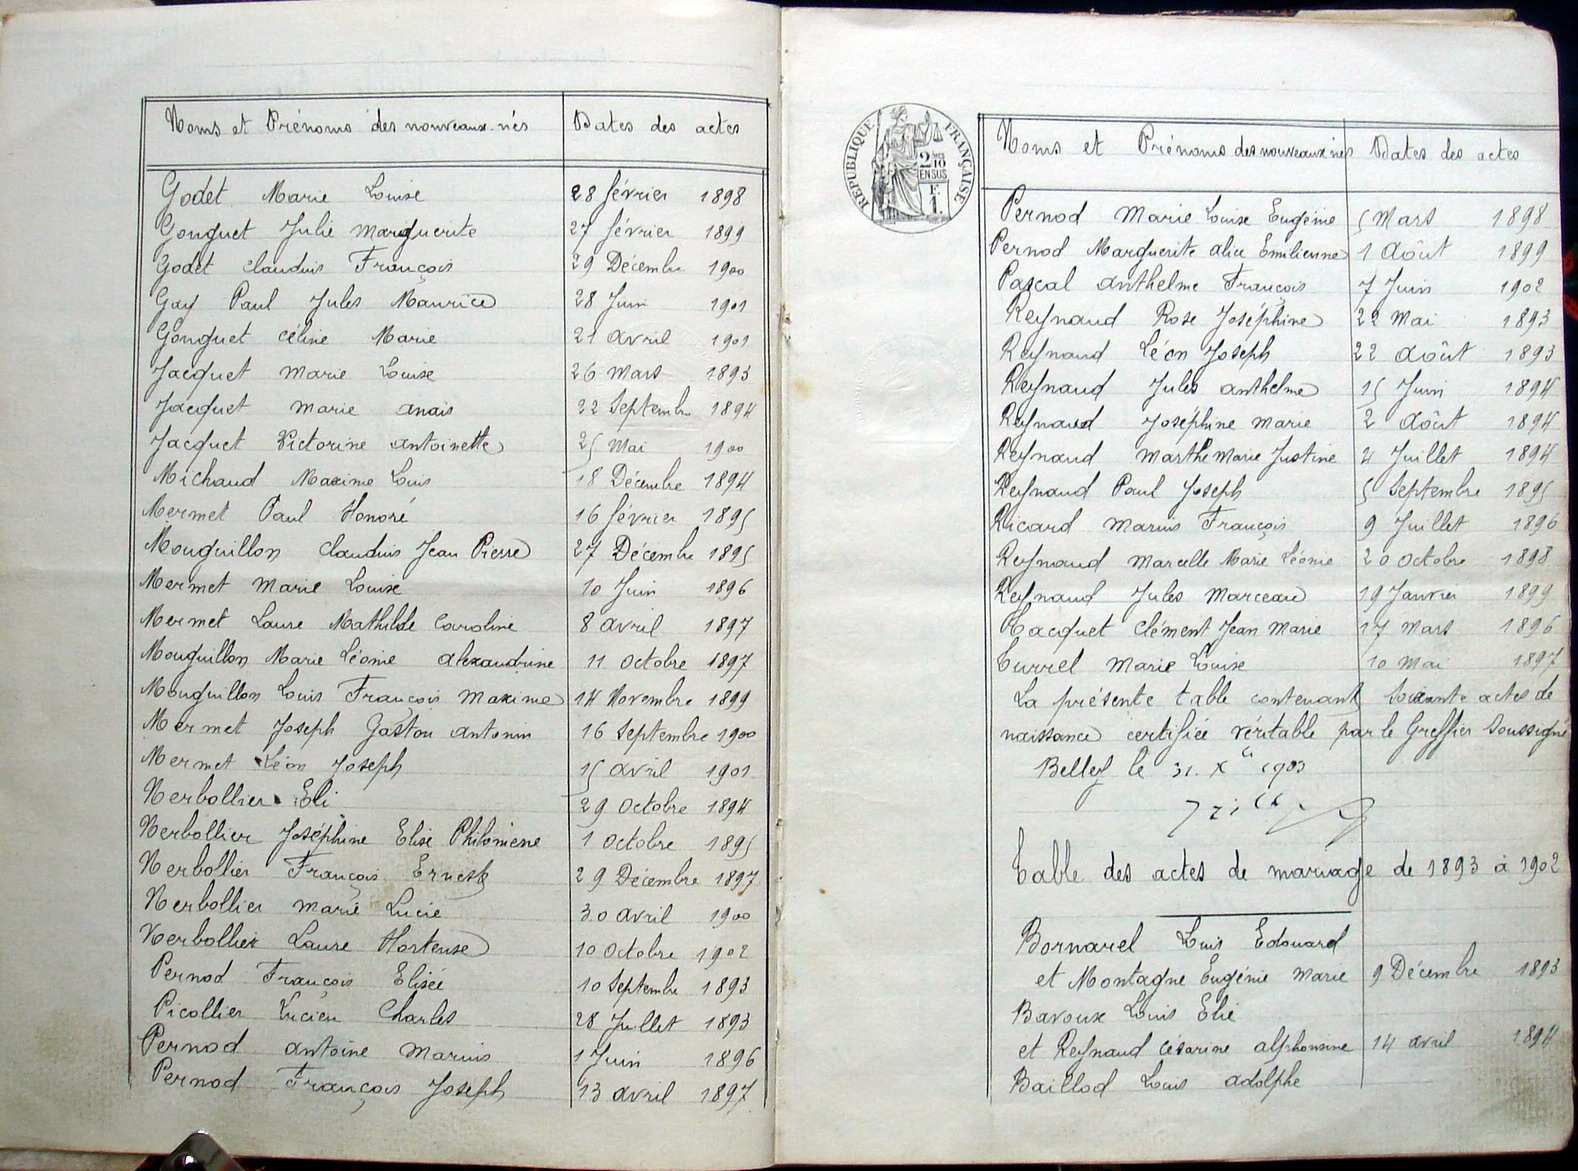 Noms et Prénoms des nouveaux-nés Dates des actes
Godet Marie Louise 28 février 1898
Gonguet Julie Marguerite 27 février 1899
Godet Claudius François 29 Décembre 1900
Gay Paul Jules Maurice 28 Juin 1901
Gonguet Céline Marie 21 avril 1901
Jacquet Marie Louise 26 Mars 1893
Jacquet Marie anais 22 Septembre 1894
Jacquet Victorine antoinette 25 Mai 1900
Michaud Maxime Louis 18 Décembre 1894
Mermet Paul Honoré 16 février 1895
Mouguillon Claudius Jean Pierre 27 Décembre 1895
Mermet Marie Louise 10 Juin 1896
Mermet Laure Mathilde Caroline 8 avril 1897
Mouguillon Marie Léonie alexandrine 11 Octobre 1897
Mouguillon Louis François Maxime 14 Novembre 1899
Mermet Joseph Gaston antonin 16 Septembre 1900
Mermet Léon Joseph 15 avril 1901
Nerbollier Eli 29 Octobre 1894
Nerbollier Joséphine Elise Philomène 1 Octobre 1895
Nerbollier François Ernest 29 Décembre 1897
Nerbollier Marie Lucie 30 avril 1900
Nerbollier Laure Hortense 10 Octobre 1902
Pernod François Elisée 10 Septembre 1893
Picollier Lucien Charles 28 Juillet 1893
Pernod antoine Marius 1 Juin 1896
Pernod François Joseph 13 avril 1897
RÉPUBLIQUE FRANÇAISE
2 10
EN SUS
F.
1.
Noms et Prénoms des nouveaux nés Dates des actes
Pernod Marie Louise Eugénie 5 Mars 1898
Pernod Marguerite alice Emilienne 1 Août 1899
Pascal anthelme François 7 Juin 1902
Reynaud Rose Joséphine 22 Mai 1893
Reynaud Léon Joseph 22 Août 1893
Reynaud Jules anthelme 15 Juin 1894
Reynaud Joséphine Marie 2 Août 1894
Reynaud Marthe Marie Justine 4 Juillet 1894
Reynaud Paul Joseph 5 Septembre 1895
Ricard Marius François 9 Juillet 1896
Reynaud Marcelle Marie Léonie 20 octobre 1898
Reynaud Jules Marceau 19 Janvier 1899
Tacquet Clément Jean Marie 17 Mars 1896
Turrel Marie Louise 10 Mai 1897
La présente table contenant soixante actes de
naissance certifiée véritable par le Greffier Soussigné
Belley le 31. Xbre 1903
Table des actes de mariage de 1893 à 1902
Bornarel Louis Edouard
et Montagne Eugénie Marie 9 Décembre 1893
Bavoux Louis Elie
et Reynaud Césarine alphonsine 14 avril 1894
Baillod Louis adolphe